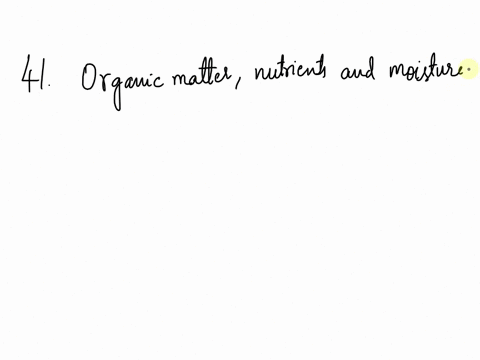 41. Organic matter, nutrients and moisture.